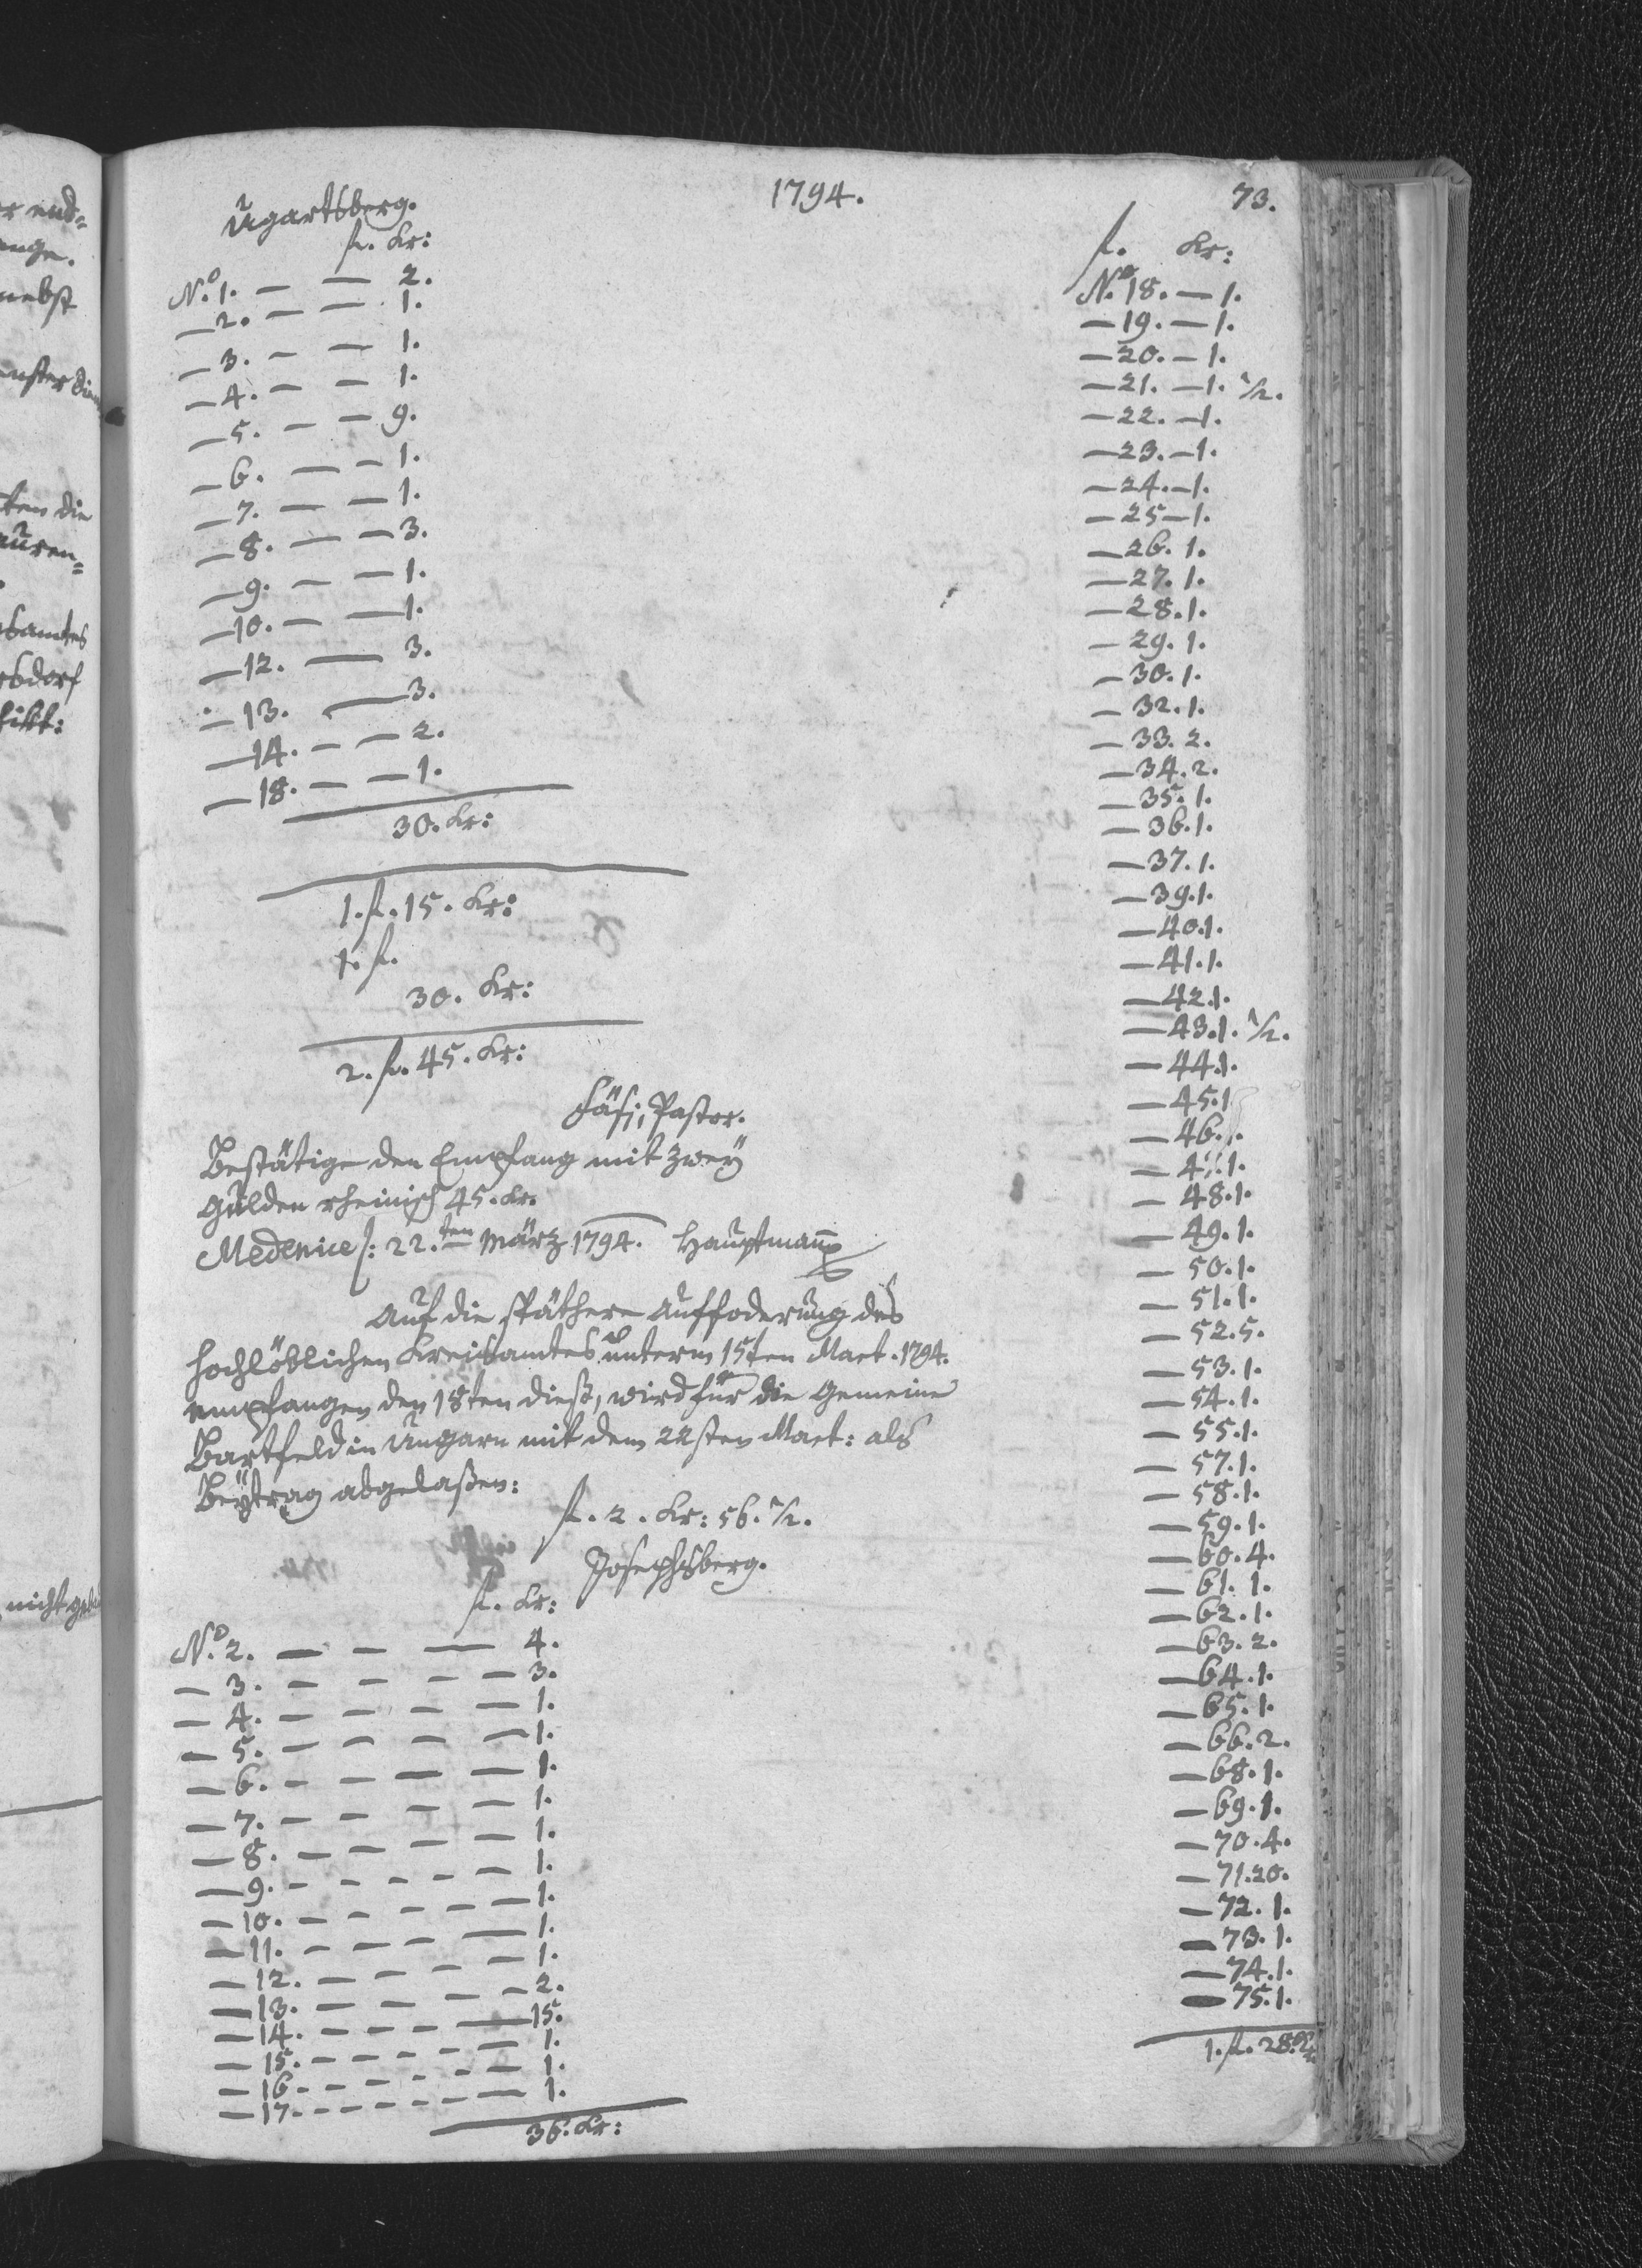 1794.
73.
Ugartsberg.
fl. Kr:
No. 1. — — 2.
— 2. — — 1.
— 3. — — 1.
— 4. — — 1.
— 5. — — 9.
— 6. — — 1.
— 7. — — 1.
— 8. — — 3.
— 9. — — 1.
— 10. — — 1.
— 12. — 3.
— 13. — 3.
— 14. — — 2.
— 18. — — 1.
30. Kr:
1. fl. 15. Kr:
1. fl.
30. Kr:
2. fl. 45. Kr:
Fäsi, Pastor.
Bestätige den Empfang mit zwey
Gulden rheinisch 45. Kr.
Medenice /: 22.ten März 1794. Hauptmann
Auf die späthere Auffoderung des
hochlöblichen Kreisamtes unterm 15ten Mart. 1794.
empfangen den 18ten dieß, wird für die Gemeine
Bartfeld in Ungarn mit dem 22sten Mart: als
Beytrag abgelaßen:
fl. 2. Kr: 56. 1/2.
Josephsberg.
fl. Kr:
No. 2. — — — 4.
— 3. — — — — 3.
— 4. — — — — 1.
— 5. — — — — 1.
— 6. — — — — 1.
— 7. — — — — 1.
— 8. — — — — 1.
— 9. — — — — — 1.
— 10. — — — — — 1.
— 11. — — — — 1.
— 12. — — — — 1.
— 13. — — — — 2.
— 14. — — — — 15.
— 15. — — — — — 1.
— 16. — — — — — 1.
— 17. — — — — — 1.
36. Kr:
fl. Kr:
No. 18. — 1.
— 19. — 1.
— 20. — 1.
— 21. — 1. 1/2.
— 22. — 1.
— 23. — 1.
— 24. — 1.
— 25 — 1.
— 26. 1.
— 27. 1.
— 28. 1.
— 29. 1.
— 30. 1.
— 32. 1.
— 33. 2.
— 34. 2.
— 35. 1.
— 36. 1.
— 37. 1.
— 39. 1.
— 40. 1.
— 41. 1.
— 42. 1.
— 43. 1. 1/2.
— 44. 1.
— 45. 1
— 46. 1.
— 47. 1.
— 48. 1.
— 49. 1.
— 50. 1.
— 51. 1.
— 52. 5.
— 53. 1.
— 54. 1.
— 55. 1.
— 57. 1.
— 58. 1.
— 59. 1.
— 60. 4.
— 61. 1.
— 62. 1.
— 63. 2.
— 64. 1.
— 65. 1.
— 66. 2.
— 68. 1.
— 69. 1.
— 70. 4.
— 71. 20.
— 72. 1.
— 73. 1.
— 74. 1.
— 75. 1.
1. fl. 28.